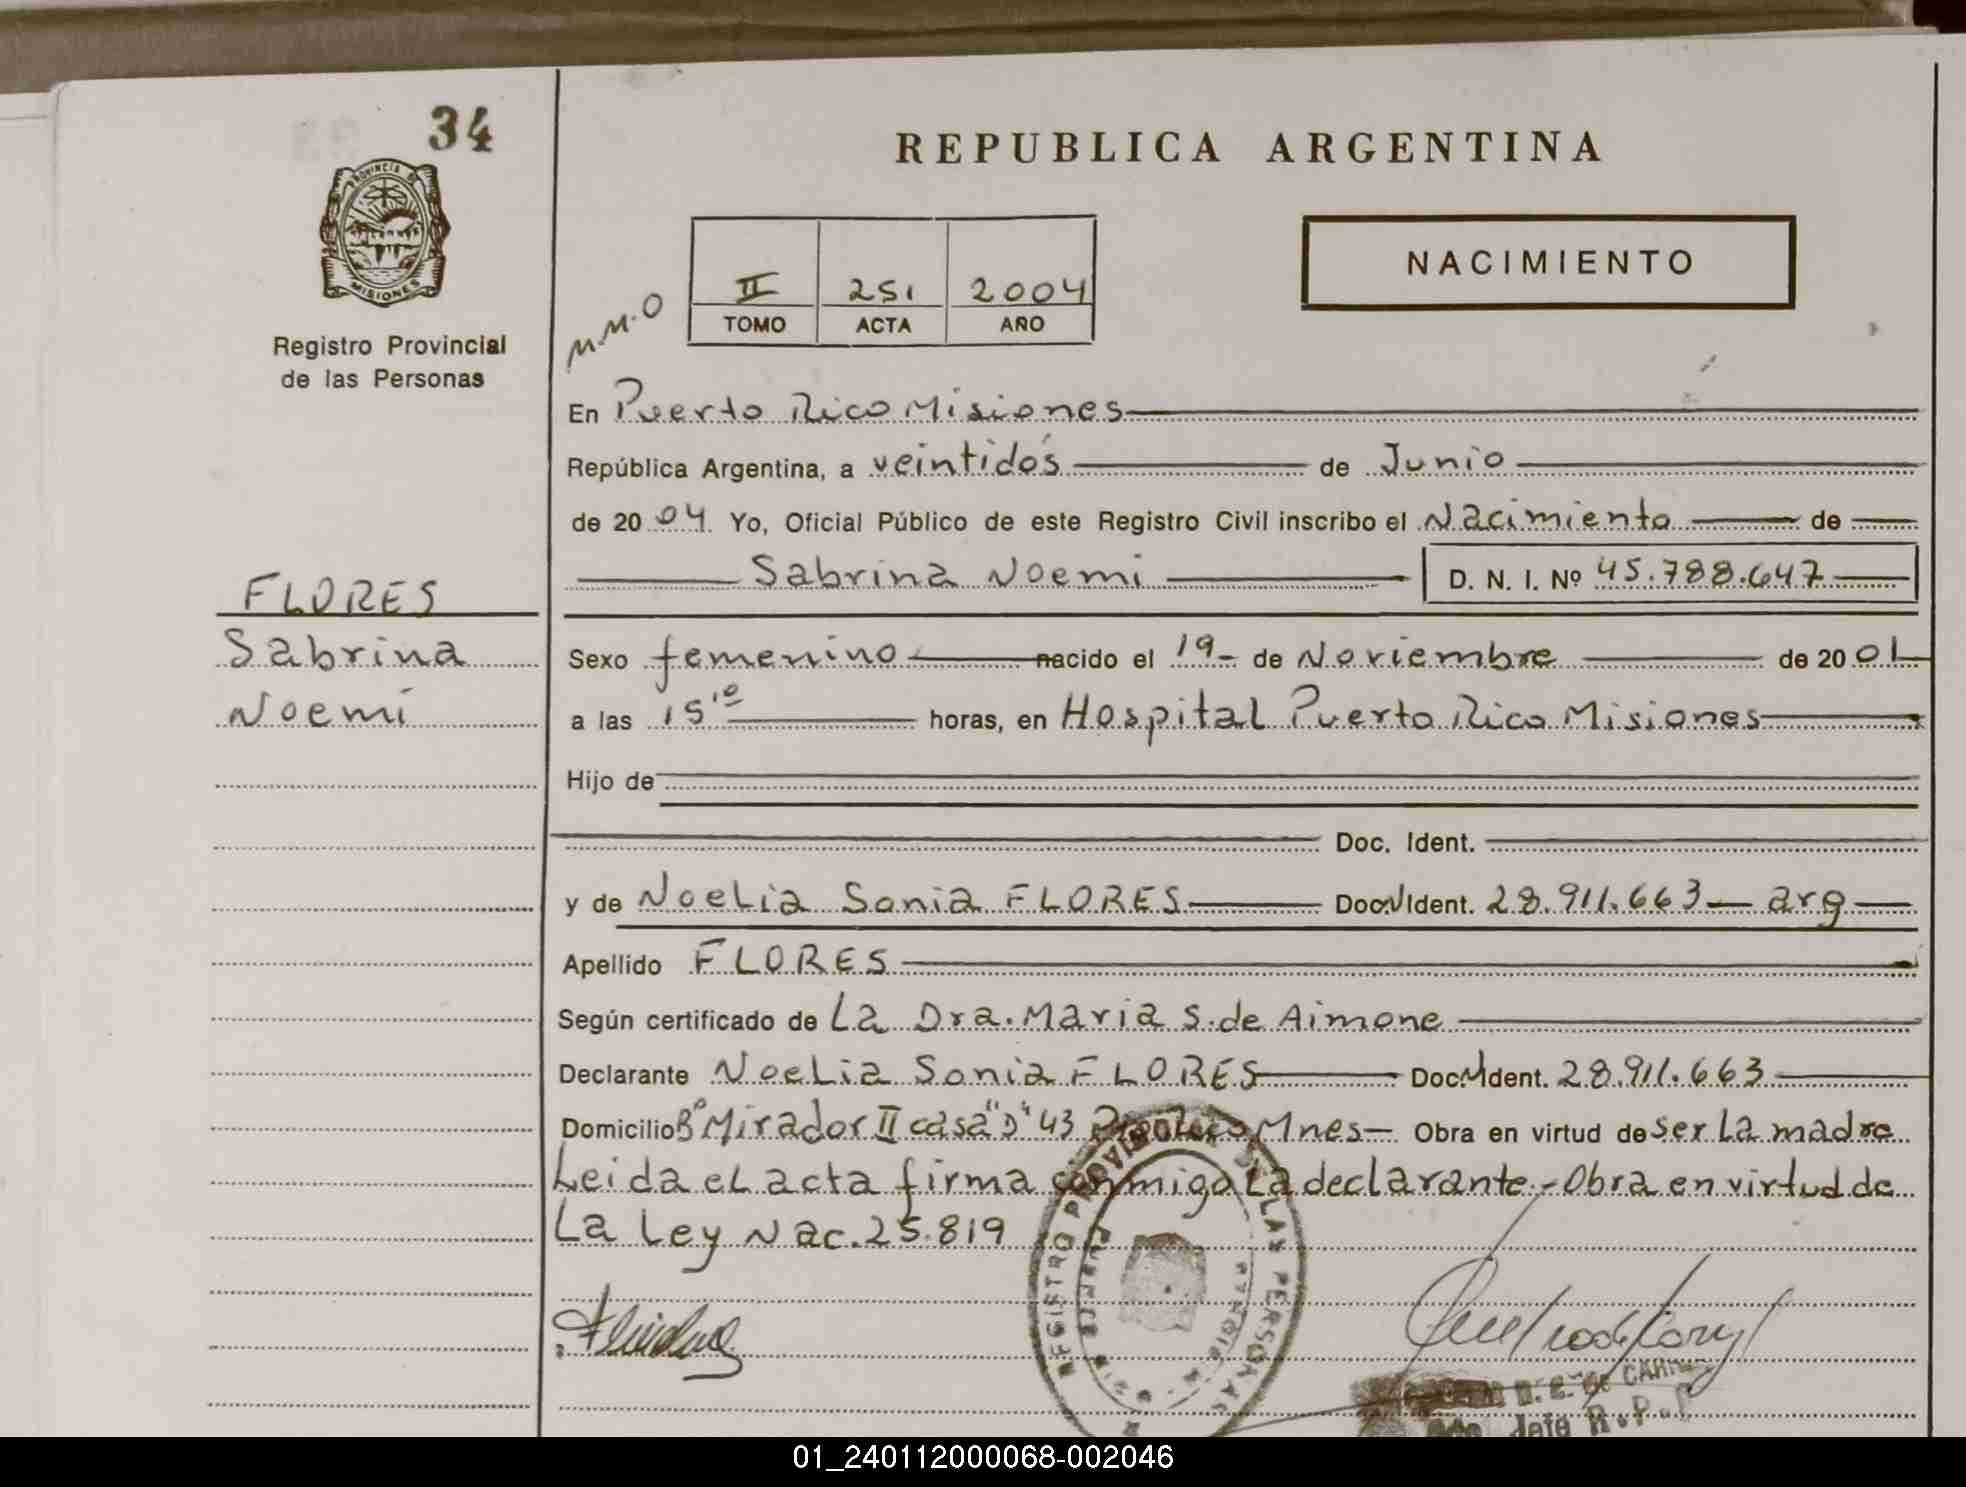 34
PROVINCIA DE
MISIONES
Registro Provincial
de las Personas
REPUBLICA ARGENTINA
NACIMIENTO
M.M.O
II 251 2004
TOMO ACTA AÑO
En Puerto Rico Misiones
República Argentina, a veintidós de Junio
de 2004 Yo, Oficial Público de este Registro Civil inscribo el Nacimiento de
Sabrina Noemi D. N. I. Nº 45.788.647
FLORES
Sabrina
Noemí
Sexo femenino nacido el 19 de Noviembre de 2001
a las 15'º horas, en Hospital Puerto Rico Misiones
Hijo de
Doc. Ident.
y de Noelia Sonia FLORES Doc. Ident. 28.911.663 arg
Apellido FLORES
Según certificado de La Dra. Maria S. de Aimone
Declarante Noelia Sonia FLORES Doc. Ident. 28.911.663
Domicilio Bº Mirador II casa "D" 43 Pto Rico Mnes Obra en virtud de ser La madre
Leida el acta firma conmigo La declarante - Obra en virtud de
La Ley Nac. 25.819
REGISTRO PROVINCIAL DE LAS PERSONAS
Jefe R.P.
01_240112000068-002046